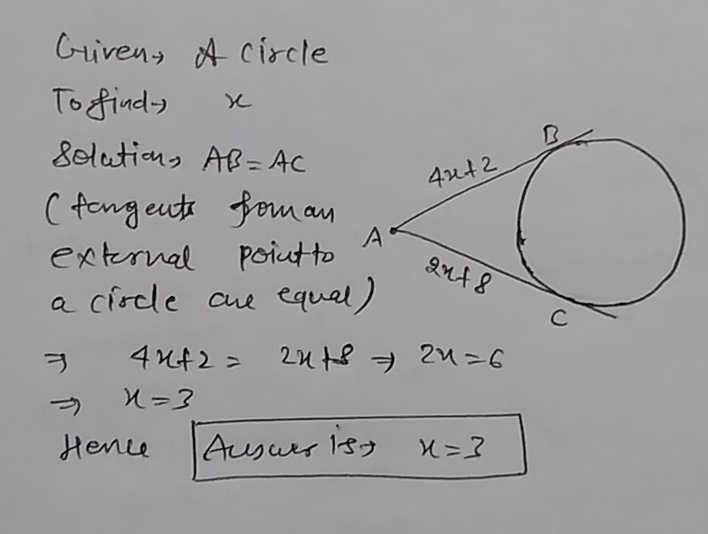 Given→ A circle
To find→ x
Solution→ AB = AC
(tangents from an
external point to
a circle are equal)
⇒ 4x+2 = 2x+8 ⇒ 2x=6
⇒ x=3
Hence Answer is→ x=3
B
4x+2
A
2x+8
C